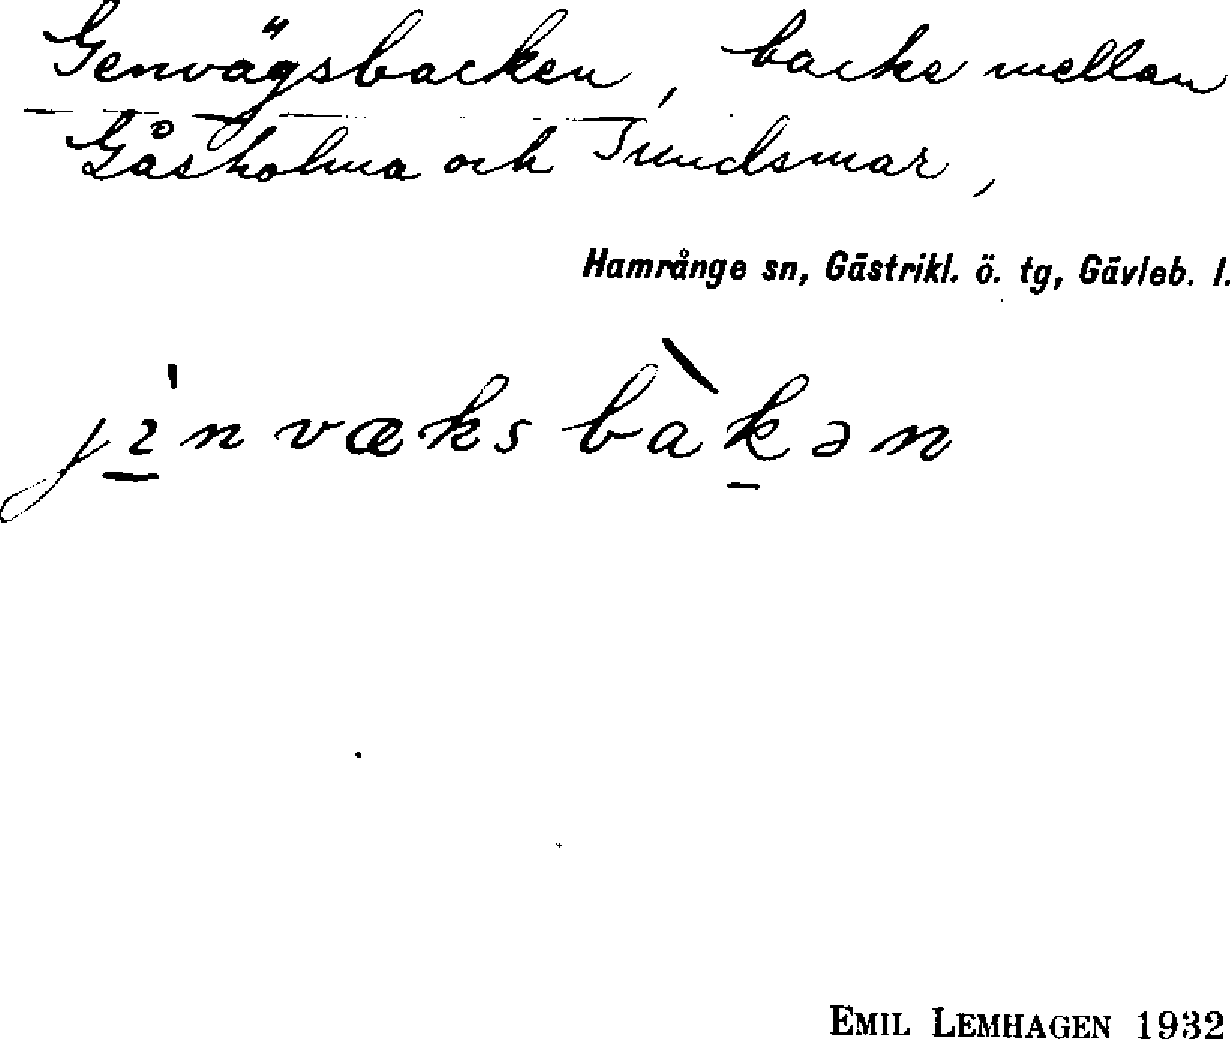 Genvägsbacken, backe mellan
Gåsholma och Sundsmar,
Hamrånge sn, Gästrikl. ö. tg, Gävleb. l.
jɪ̠̍nvæksbàk̠ən
EMIL LEMHAGEN 1932